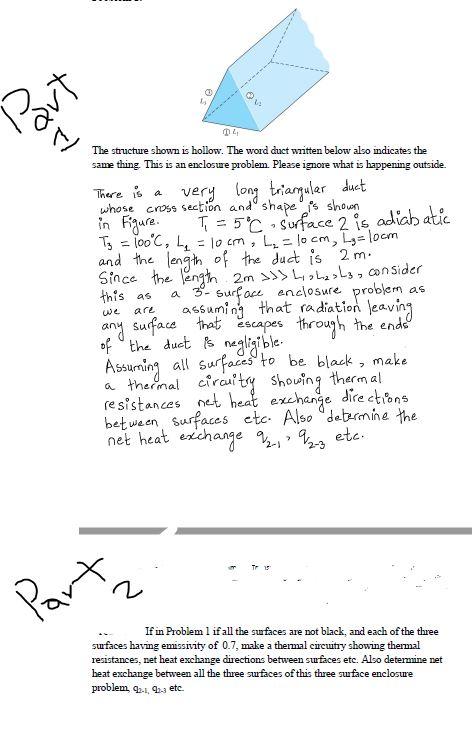 Part
1
③
L₃
②
L₂
① L₁
The structure shown is hollow. The word duct written below also indicates the
same thing. This is an enclosure problem. Please ignore what is happening outside.
There is a very long triangular duct
whose cross section and shape is shown
in Figure. T₁ = 5°C, surface 2 is adiabatic
T₃ = 100°C, L₁ = 10 cm, L₂ = 10 cm, L₃ = 10cm
and the length of the duct is 2m.
Since the length 2m >>> L₁, L₂, L₃, consider
this as a 3-surface enclosure problem as
we are assuming that radiation leaving
any surface that escapes through the ends
of the duct is negligible.
Assuming all surfaces to be black, make
a thermal circuitry showing thermal
resistances net heat exchange directions
between surfaces etc. Also determine the
net heat exchange q₂₋₁, q₂₋₃ etc.
Part
2
If in Problem 1 if all the surfaces are not black, and each of the three
surfaces having emissivity of 0.7, make a thermal circuitry showing thermal
resistances, net heat exchange directions between surfaces etc. Also determine net
heat exchange between all the three surfaces of this three surface enclosure
problem, q₂₋₁, q₂₋₃ etc.